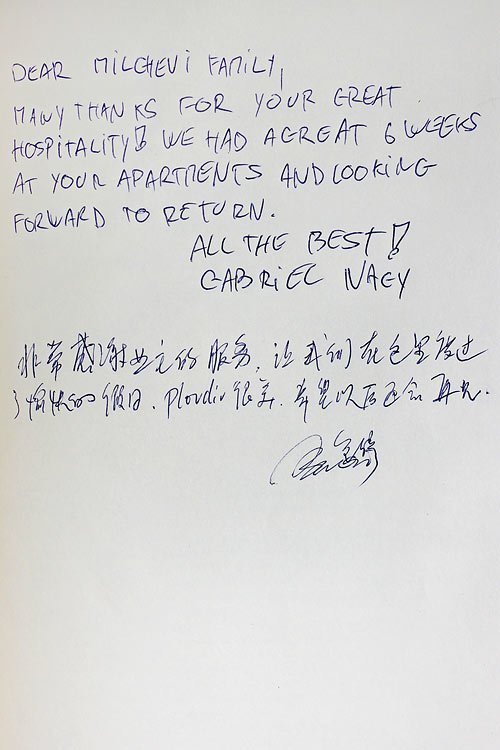 DEAR MILCHEVI FAMILY,
MANY THANKS FOR YOUR GREAT
HOSPITALITY! WE HAD A GREAT 6 WEEKS
AT YOUR APARTMENTS AND LOOKING
FORWARD TO RETURN.
ALL THE BEST!
GABRIEL NAGY
非常感谢业主的服务，让我们在这里渡过
了愉快的假日。Plovdiv很美，希望以后还会再见。